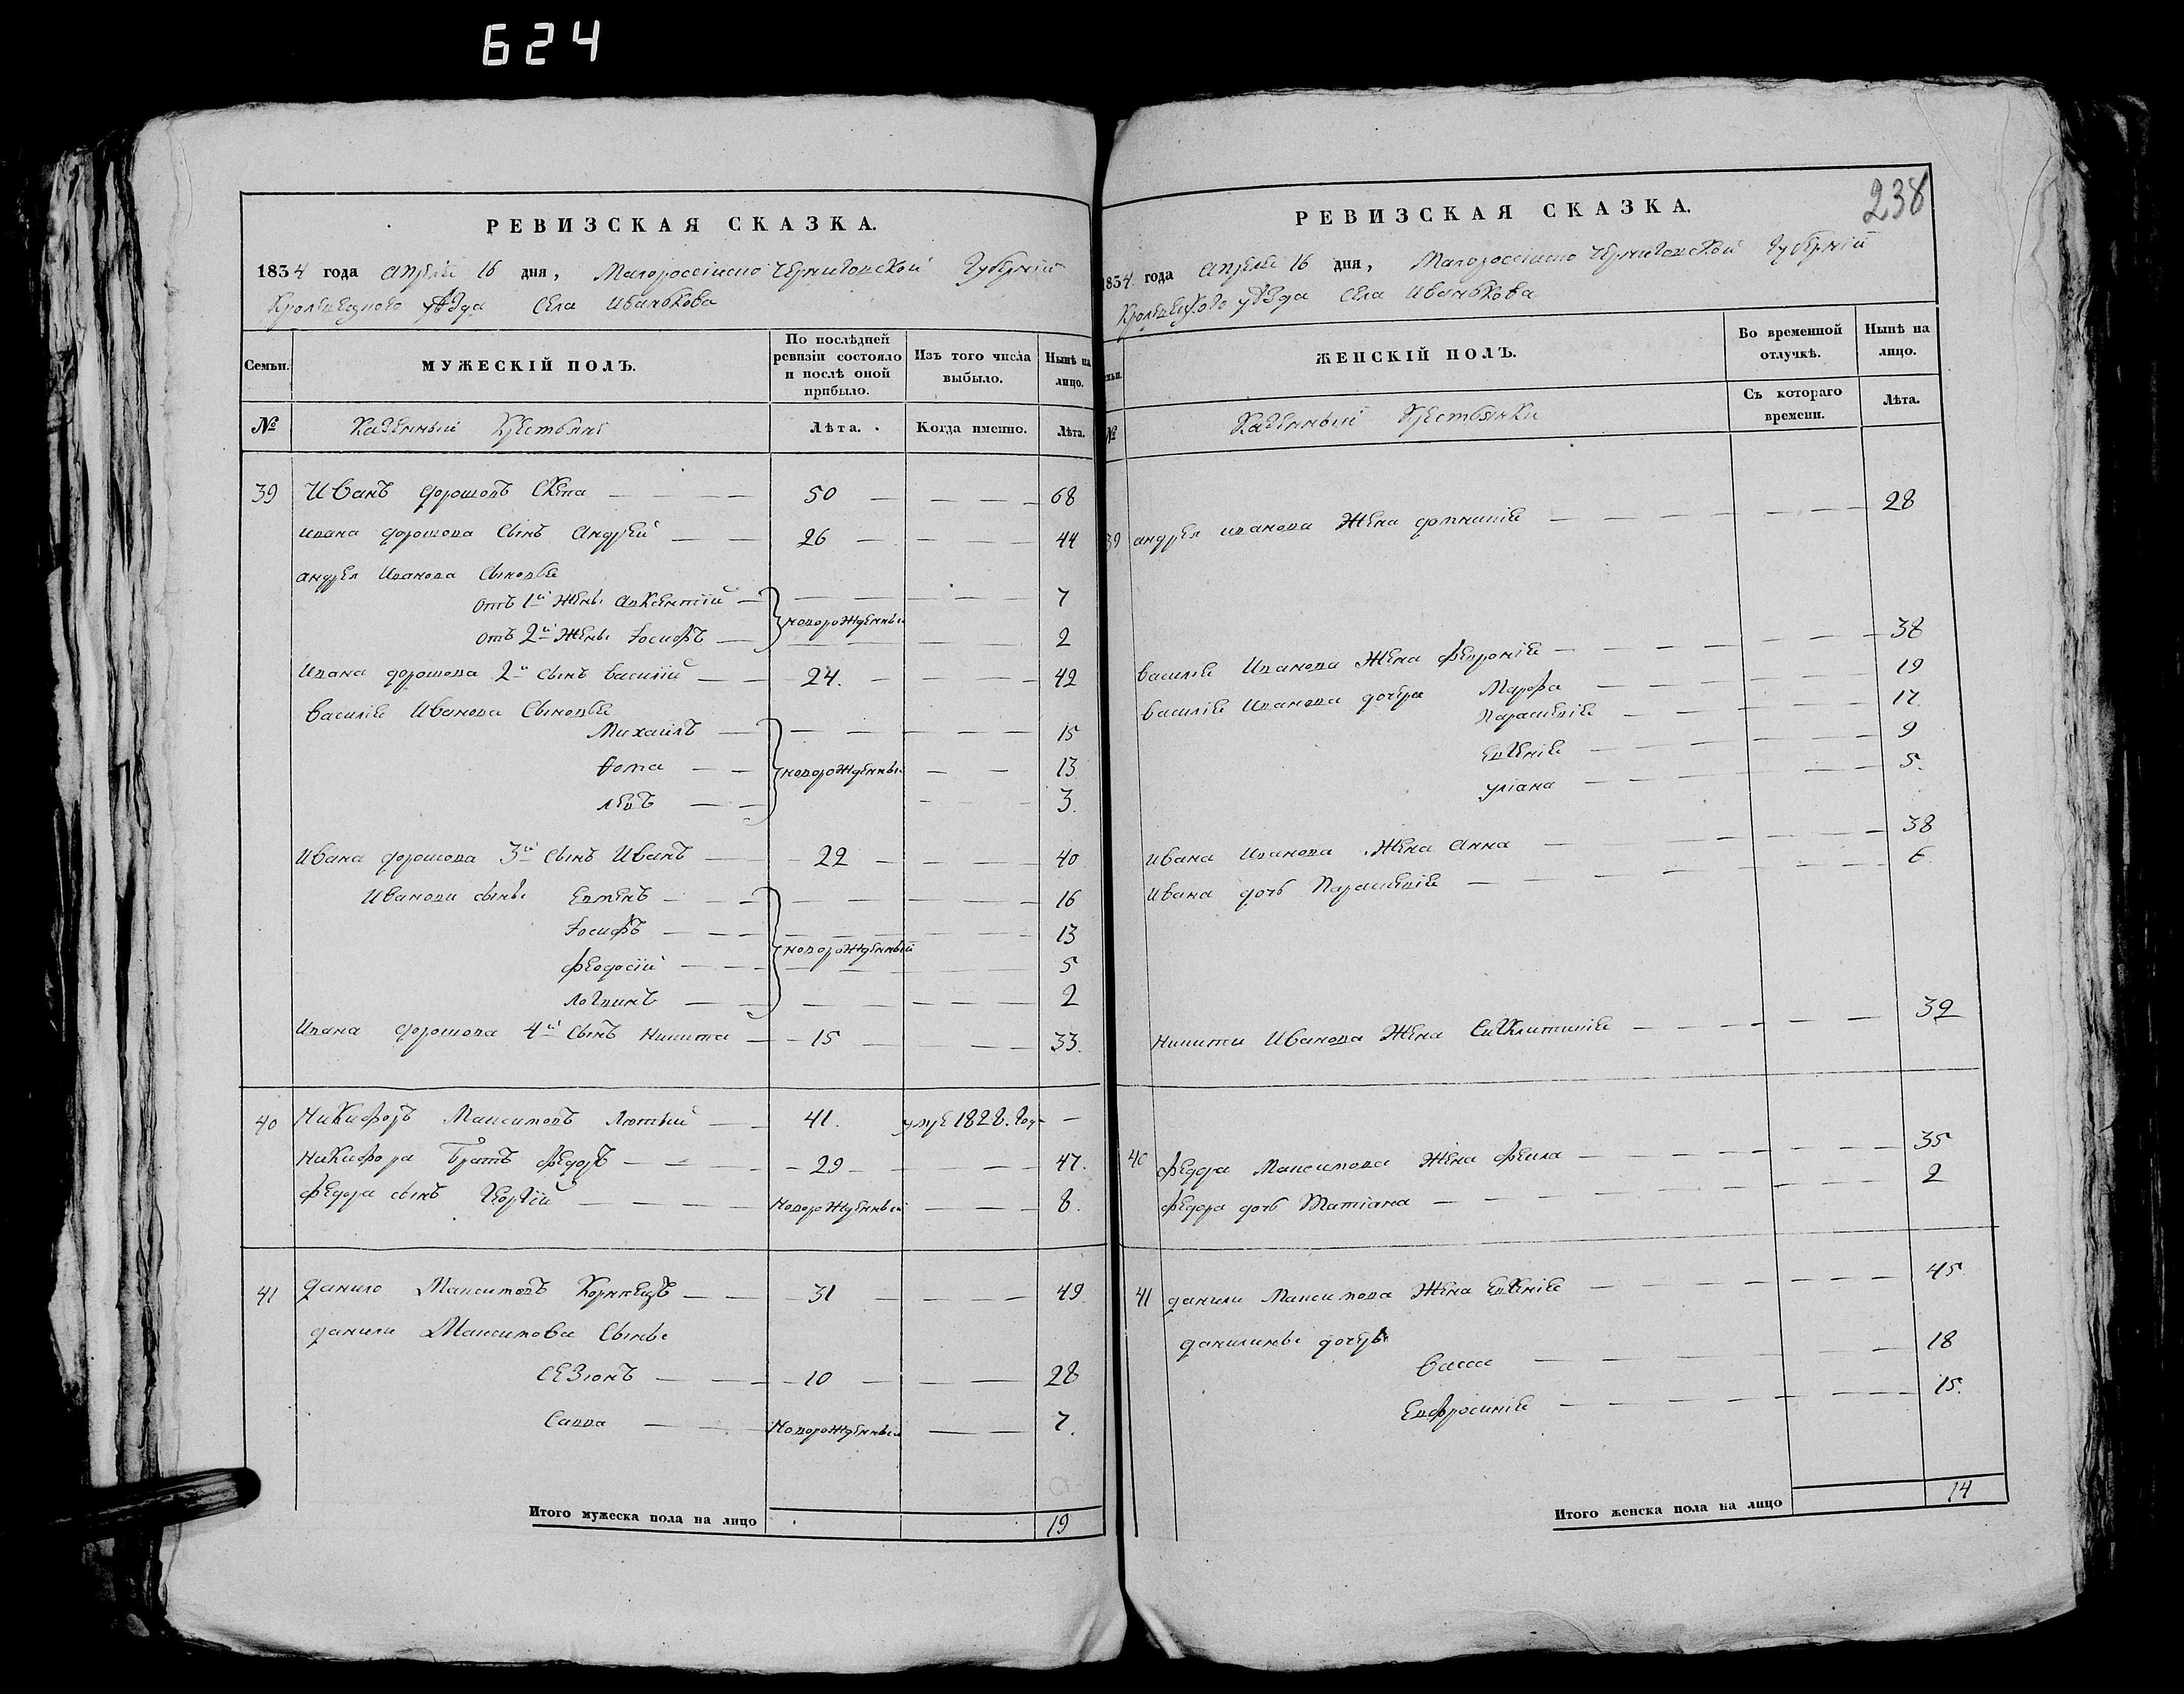 624
РЕВИЗСКАЯ СКАЗКА.
1834 года апреля 16 дня, Малороссийско Черниговской Губернии
Кролевецкого уѣзда Села Иванькова
Семьи. МУЖЕСКІЙ ПОЛЪ. По послѣдней ревизіи состояло и послѣ оной прибыло. Изъ того числа выбыло. Нынѣ на лицо.
№ Казенныи Крестьяне Лѣта. Когда именно. Лѣта.
39 Иванъ Дорошовъ Скепа 50 68
Ивана Дорошова Сынъ Андрей 26 44
Андрея Иванова Сыновья
отъ 1й Жены Авксентій новорожденныи 7
отъ 2й Жены Іосифъ 2
Ивана Дорошова 2й сынъ Василій 24. 42
Василія Иванова Сыновья
Михаилъ 15
Ѳома новорожденныи 13
Левъ 3.
Ивана Дорошова 3й Сынъ Иванъ 22 40
Иванови сыны Евменъ 16
Іосифъ 13
новорожденный
Феодосій 5
Логвинъ 2
Ивана Дорошова 4й Сынъ Никита 15 33.
40 Никифоръ Максимовъ Лютый 41. умре 1828. год
Никифора Братъ Федоръ 29 47.
Федора сынъ Георгій новорожденный 8.
41 Данило Максимовъ Корнѣецъ 31 49
Данила Максимова Сыны
Сезонъ 10 28
Савва Новорожденный 7.
Итого мужеска пола на лицо 19
238
РЕВИЗСКАЯ СКАЗКА.
1834 года Апреля 16 дня, Малороссийско Черниговской Губернии
Кролевецкого уѣзда Села Иванькова
Семьи. ЖЕНСКІЙ ПОЛЪ. Во временной отлучкѣ. Нынѣ на лицо.
№ Казенныи Крестьянки Съ котораго времени. Лѣта.
39 Андрея Иванова Жена Домникія 28
Василія Иванова Жена Февронія 38
Василія Иванова дочери Марфа 19
Параскевія 17
Евгенія 9
Уліана 5.
Ивана Иванова Жена Анна 38
Ивана дочь Параскевія 6
Никиты Иванова Жена Сиклитикія 32
40 Федора Максимова Жена Фекла 35
Федора дочь Татіана 2
41 Данила Максимова Жена Евгенія 45
Данилины дочеры
Васса 18
Евфросинія 15.
Итого женска пола на лицо 14